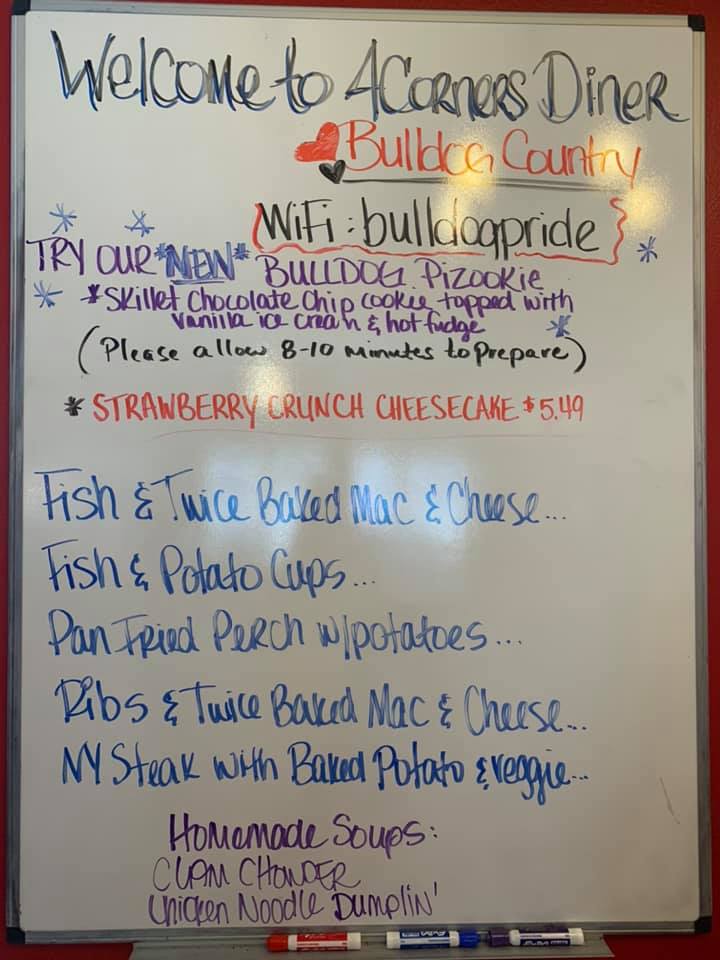 Welcome to 4 Corners Diner
Bulldog Country
WiFi: bulldogpride
TRY OUR *NEW* BULLDOG Pizookie
*Skillet Chocolate Chip cookie topped with
vanilla ice cream & hot fudge
(Please allow 8-10 minutes to prepare)
* STRAWBERRY CRUNCH CHEESECAKE $5.49
Fish & Twice Baked Mac & Cheese...
Fish & Potato Cups...
Pan Fried Perch w/potatoes...
Ribs & Twice Baked Mac & Cheese...
NY Steak with Baked Potato & veggie...
Homemade Soups:
CLAM CHOWDER
Chicken Noodle Dumplin'